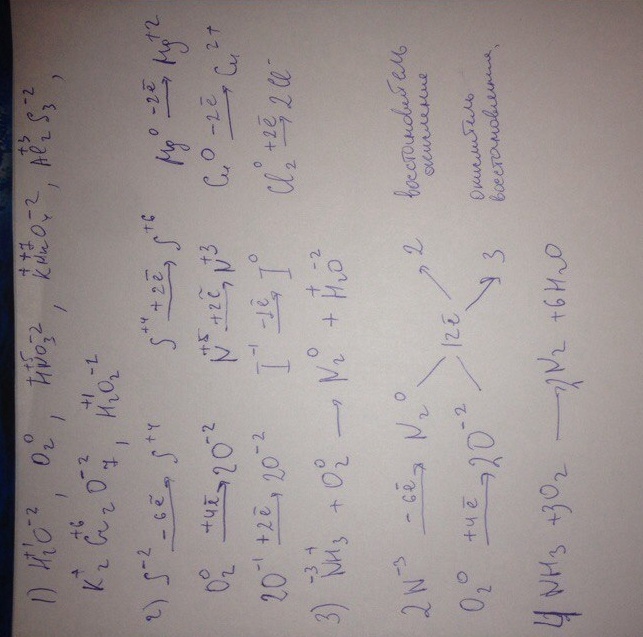 1) H₂⁺¹O⁻², O₂⁰, H⁺N⁺⁵O₃⁻², K⁺Mn⁺⁷O₄⁻², Al₂⁺³S₃⁻²,
K₂⁺Cr₂⁺⁶O₇⁻², H₂⁺¹O₂⁻²
2) S⁻² -6ē→ S⁺⁴ S⁺⁴ +2ē→ S⁺⁶ Mg⁰ -2ē→ Mg⁺²
O₂⁰ +4ē→ 2O⁻² N⁺⁵ +2ē→ N⁺³ Cu⁰ -2ē→ Cu²⁺
2O⁻¹ +2ē→ 2O⁻² I⁻¹ -1ē→ I⁰ Cl₂⁰ +2ē→ 2Cl⁻
3) N⁻³H₃⁺ + O₂⁰ → N₂⁰ + H₂⁺O⁻²
2N⁻³ -6ē→ N₂⁰ 12ē 2 восстановитель окисление
O₂⁰ +4ē→ 2O⁻² 3 окислитель восстановление,
4NH₃ + 3O₂ → 2N₂ + 6H₂O